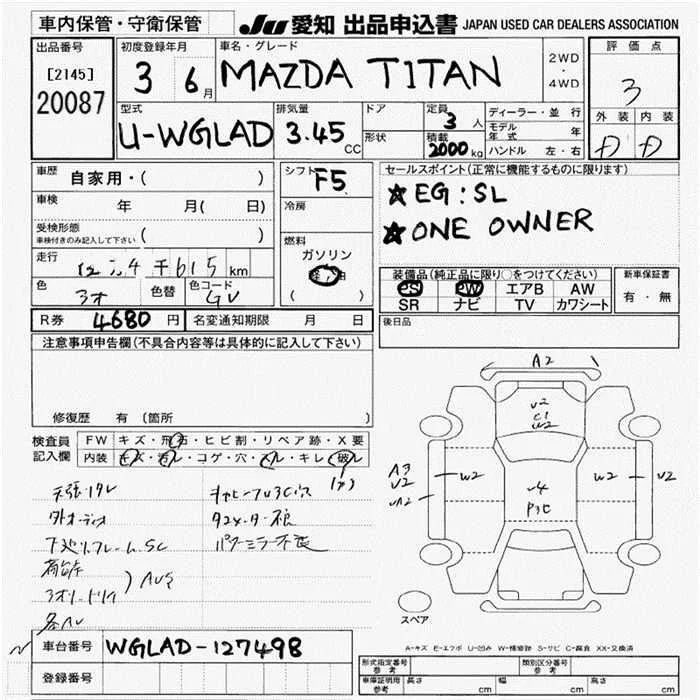 車内保管・守衛保管
JU 愛知 出品申込書 JAPAN USED CAR DEALERS ASSOCIATION
出品番号
[2145]
20087
初度登録年月
3 6月
車名・グレード
MAZDA TITAN
2WD
・
4WD
評価点
3
型式
U-WGLAD
排気量
3.45 CC
ドア
形状
定員
3 人
積載
2000 kg
ディーラー・並行
モデル年式 年
ハンドル 左・右
外装 内装
D D
車歴 自家用・( )
車検 年 月( 日)
受検形態
車検付きのみ記入して下さい ( )
走行 4千615 km
色 色替 色コード
GV
シフト
F5
冷房
燃料
ガソリン
軽油
( )
セールスポイント(正常に機能するものに限ります)
★EG:SL
★ONE OWNER
装備品(純正品に限り○をつけてください)
PS PW エアB AW
SR ナビ TV カワシート
新車保証書
有・無
R券 4680円 名変通知期限 月 日
後日品
注意事項申告欄(不具合内容等は具体的に記入して下さい)
修復歴 有(箇所 )
検査員
記入欄
FW キズ・飛石・ヒビ割・リペア跡・X要
内装 キズ・汚レ・コゲ・穴・スレ・キレ・破レ
下廻リフレームSC
パワーミラー不良
A2
U2
C1
W2
A3
V2
W2
W2
U2
スペア
A-キズ E-エクボ U-凹み W-補修跡 S-サビ C-腐食 XX-交換済
車台番号 WGLAD-127498
登録番号
形式指定番号
参考
類別区分番号
参考
車庫証明用
参考
長さ cm 幅 cm 高さ cm